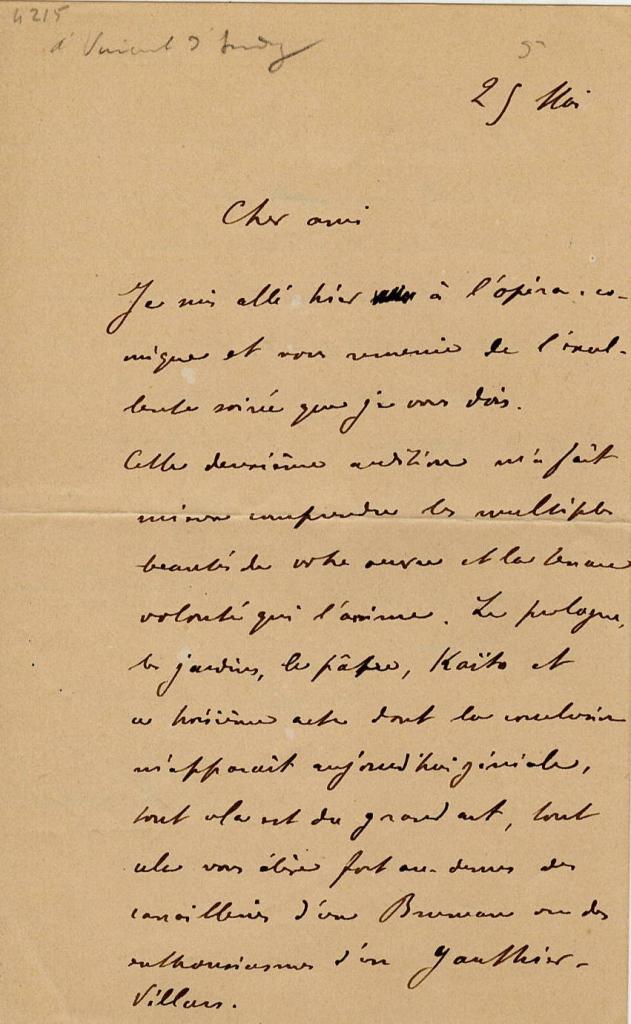 4215
à Vincent d'Indy
5
25 Mai
Cher ami
Je suis allé hier à l'opéra-co-
mique et vous remercie de l'excel-
lente soirée que je vous dois.
Cette deuxième audition m'a fait
mieux comprendre les multiples
beautés de votre œuvre et la tenace
volonté qui l'anime. Le prologue,
les jardins, le pâtre, Kaïto et
ce troisième acte dont la conclusion
m'apparaît aujourd'hui géniale,
tout cela est du grand art, tout
cela vous élève fort au-dessus des
canailleries d'un Bruneau ou des
enthousiasmes d'un Gauthier-
Villars.